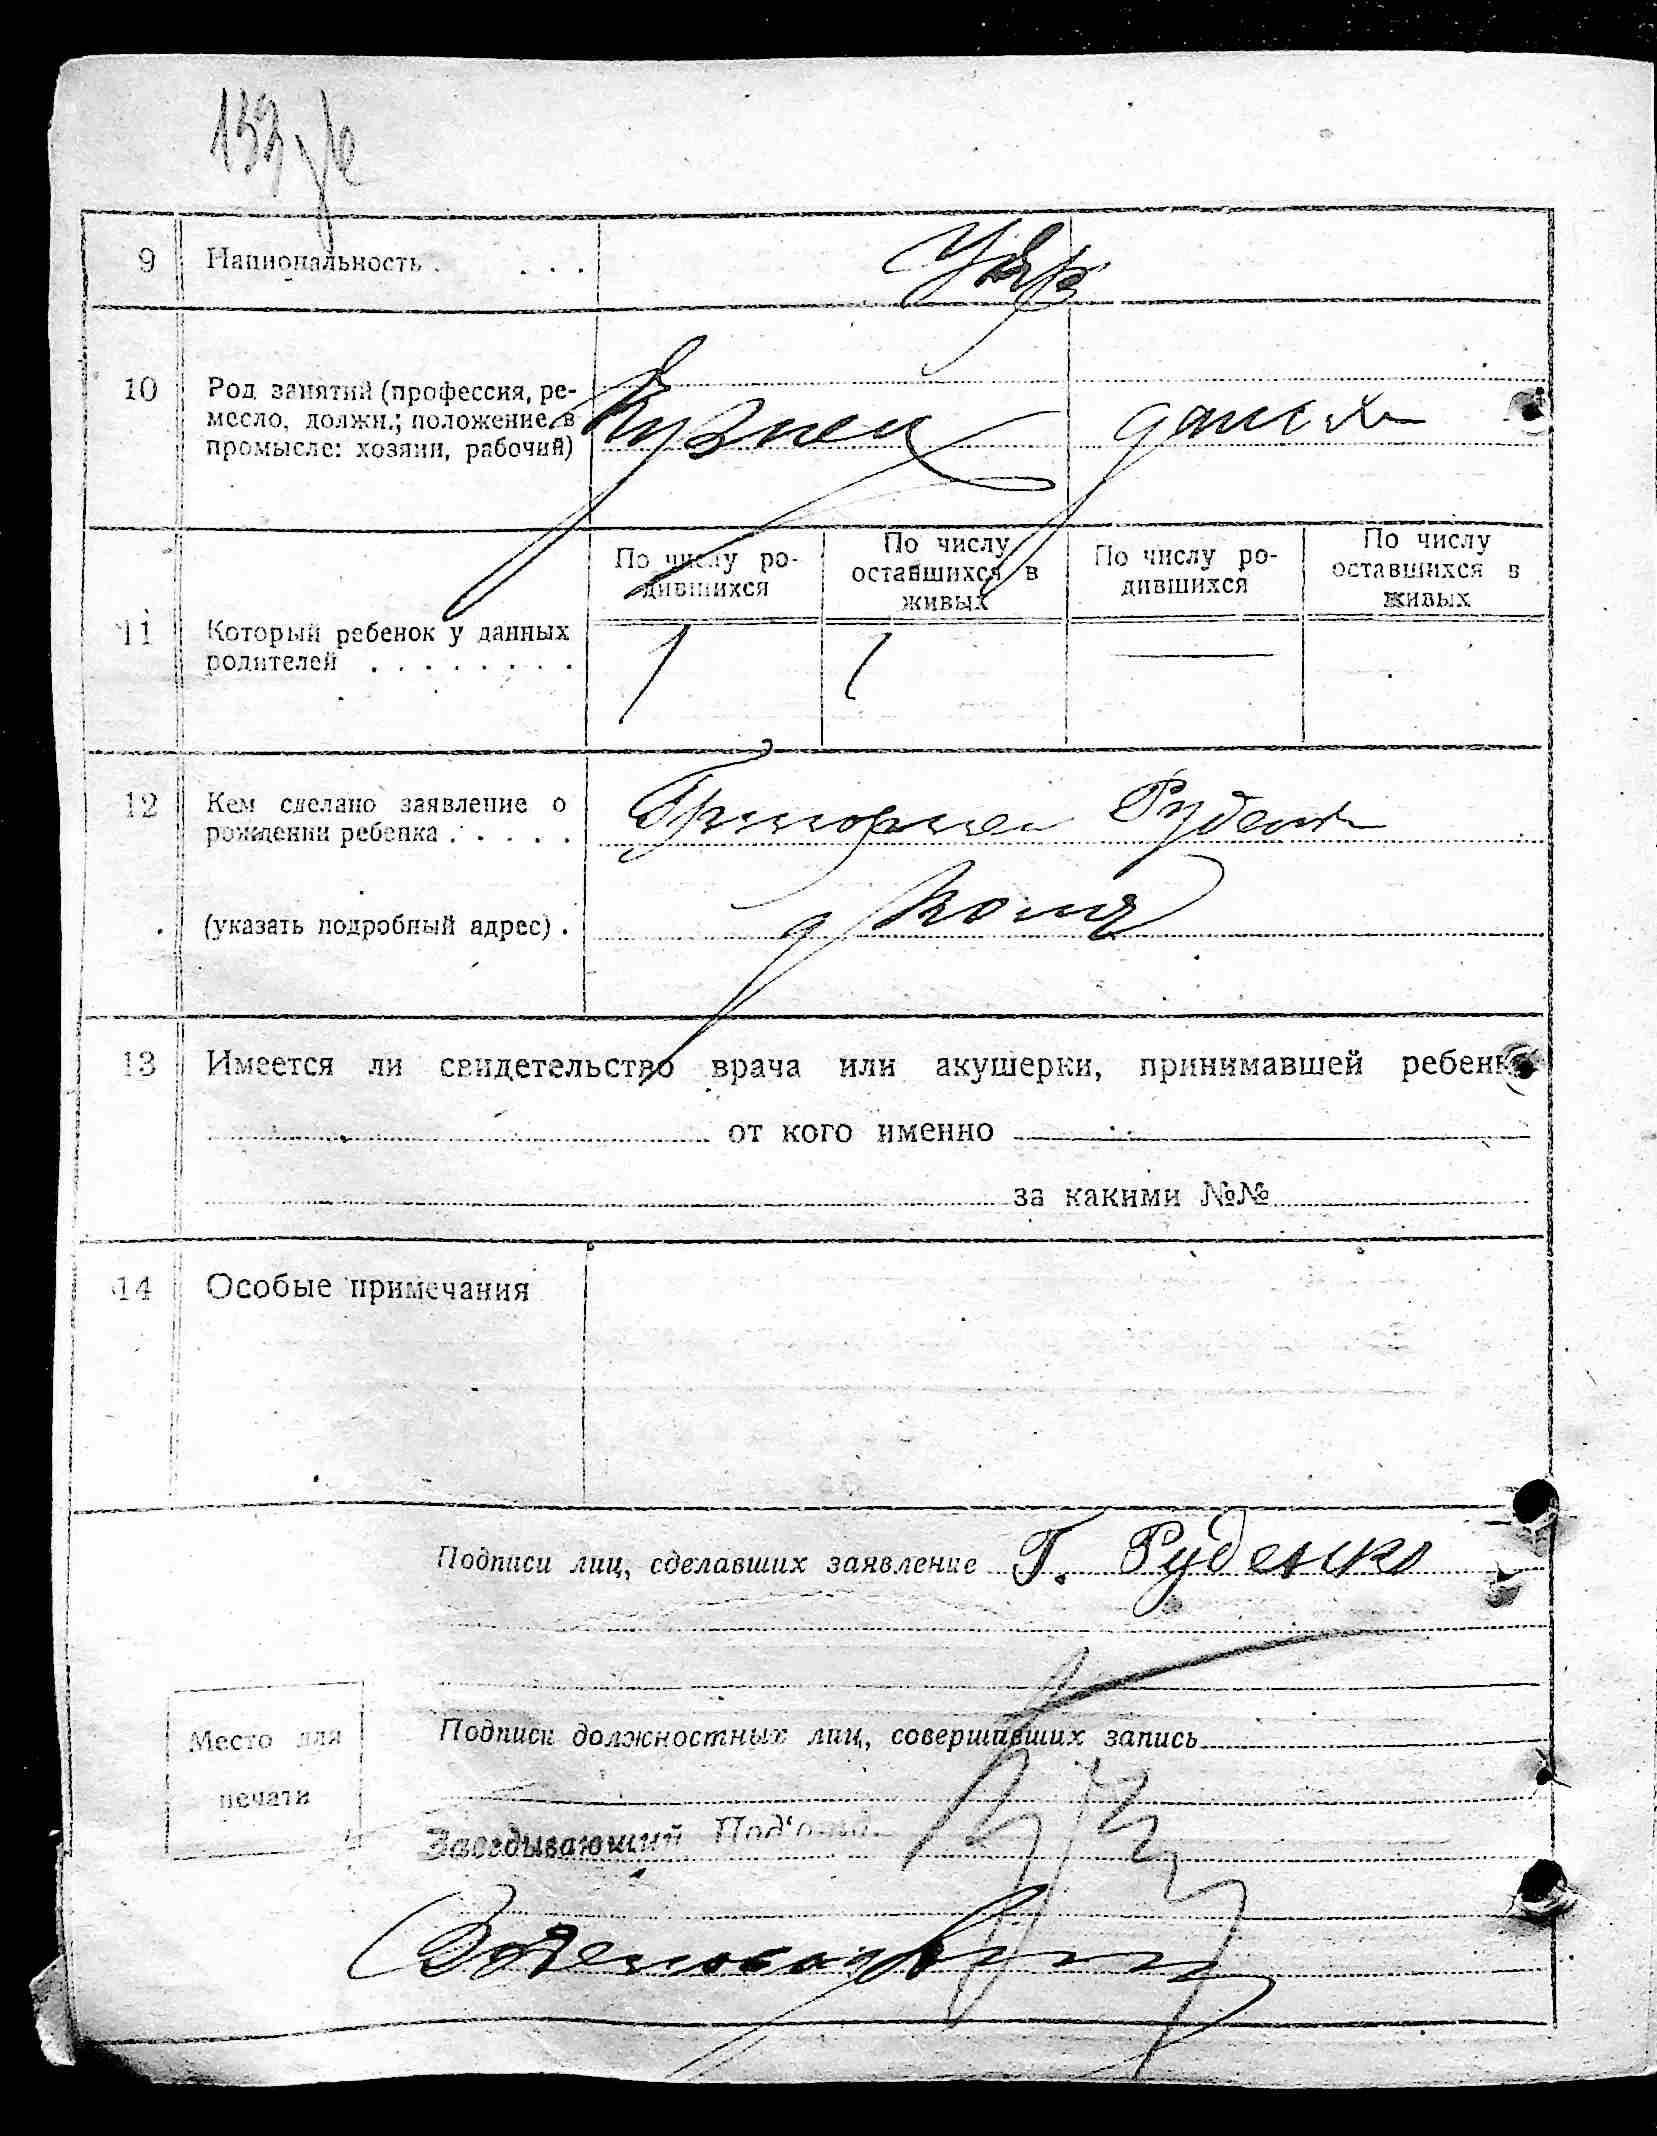 9 Национальность . . . . Укр
10 Род занятий (профессия, ре-
месло, должн.; положение в
промысле: хозяин, рабочий)
Кузнец
По числу ро-
дившихся
По числу
оставшихся в
живых
По числу ро-
дившихся
По числу
оставшихся в
живых
11 Который ребенок у данных
родителей . . . . . . . .
1 1 —
12 Кем сделано заявление о
рождении ребенка . . . . .
Руденко
(указать подробный адрес) .
13 Имеется ли свидетельство врача или акушерки, принимавшей ребенка
от кого именно
за какими №№
14 Особые примечания
Подписи лиц, сделавших заявление Г. Руденко
Подписи должностных лиц, совершивших запись
Место для
печати
Заведывающий